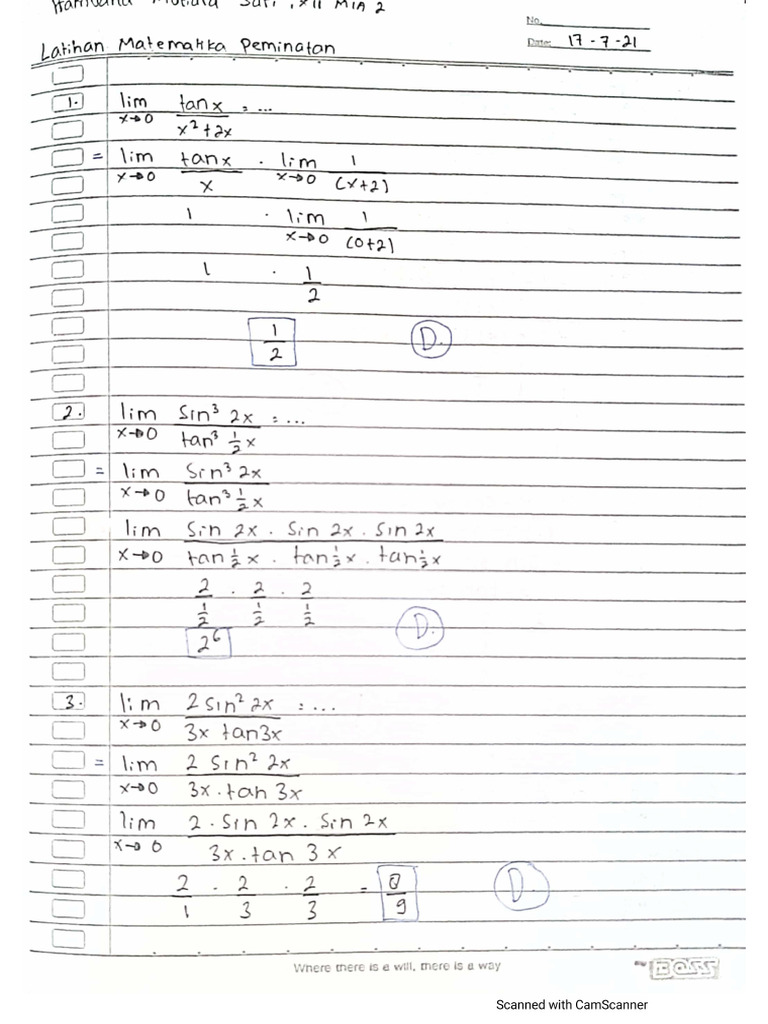 Sari, XII MIA 2
No.
Date: 17-7-21
Latihan Matematika Peminatan
1. lim x→0 tan x / x² + 2x = ...
= lim x→0 tan x / x · lim x→0 1 / (x+2)
1 · lim x→0 1 / (0+2)
1 · 1/2
1/2 D.
2. lim x→0 sin³ 2x / tan³ 1/2 x = ...
= lim x→0 sin³ 2x / tan³ 1/2 x
lim x→0 sin 2x · sin 2x · sin 2x / tan 1/2 x · tan 1/2 x · tan 1/2 x
2 / 1/2 · 2 / 1/2 · 2 / 1/2
2⁶ D.
3. lim x→0 2 sin² 2x / 3x tan 3x = ...
= lim x→0 2 sin² 2x / 3x · tan 3x
lim x→0 2 · sin 2x · sin 2x / 3x · tan 3x
2/1 · 2/3 · 2/3 = 8/9 D.
Where there is a will, there is a way
BOSS
Scanned with CamScanner